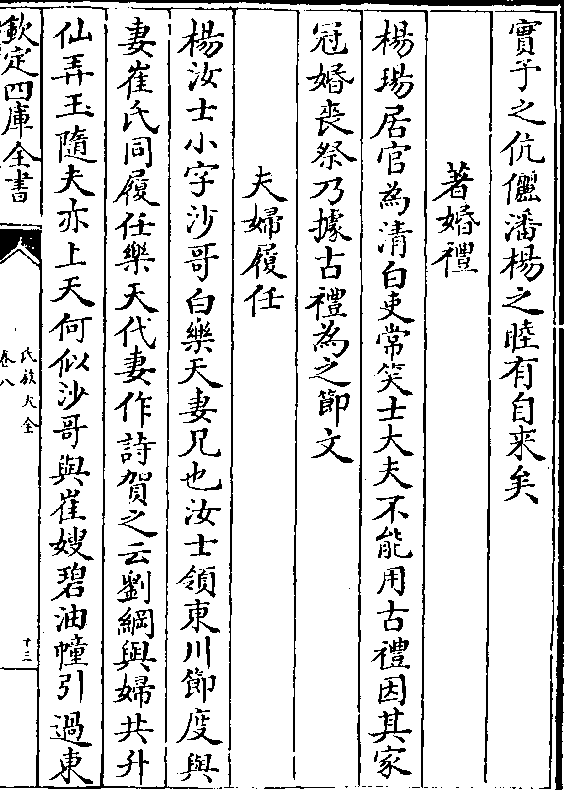 實子之伉儷潘楊之睦有自来矣
著婚禮
楊瑒居官為清白吏常笑士大夫不能用古禮因其家
冠婚喪祭乃據古禮為之節文
夫婦履任
楊汝士小字沙哥白樂天妻兄也汝士領東川節度與
妻崔氏同履任樂天代妻作詩賀之云劉綱與婦共升
仙弄玉隨夫亦上天何似沙哥與崔嫂碧油幢引過東
欽定四庫全書
氏族大全
卷八
十三